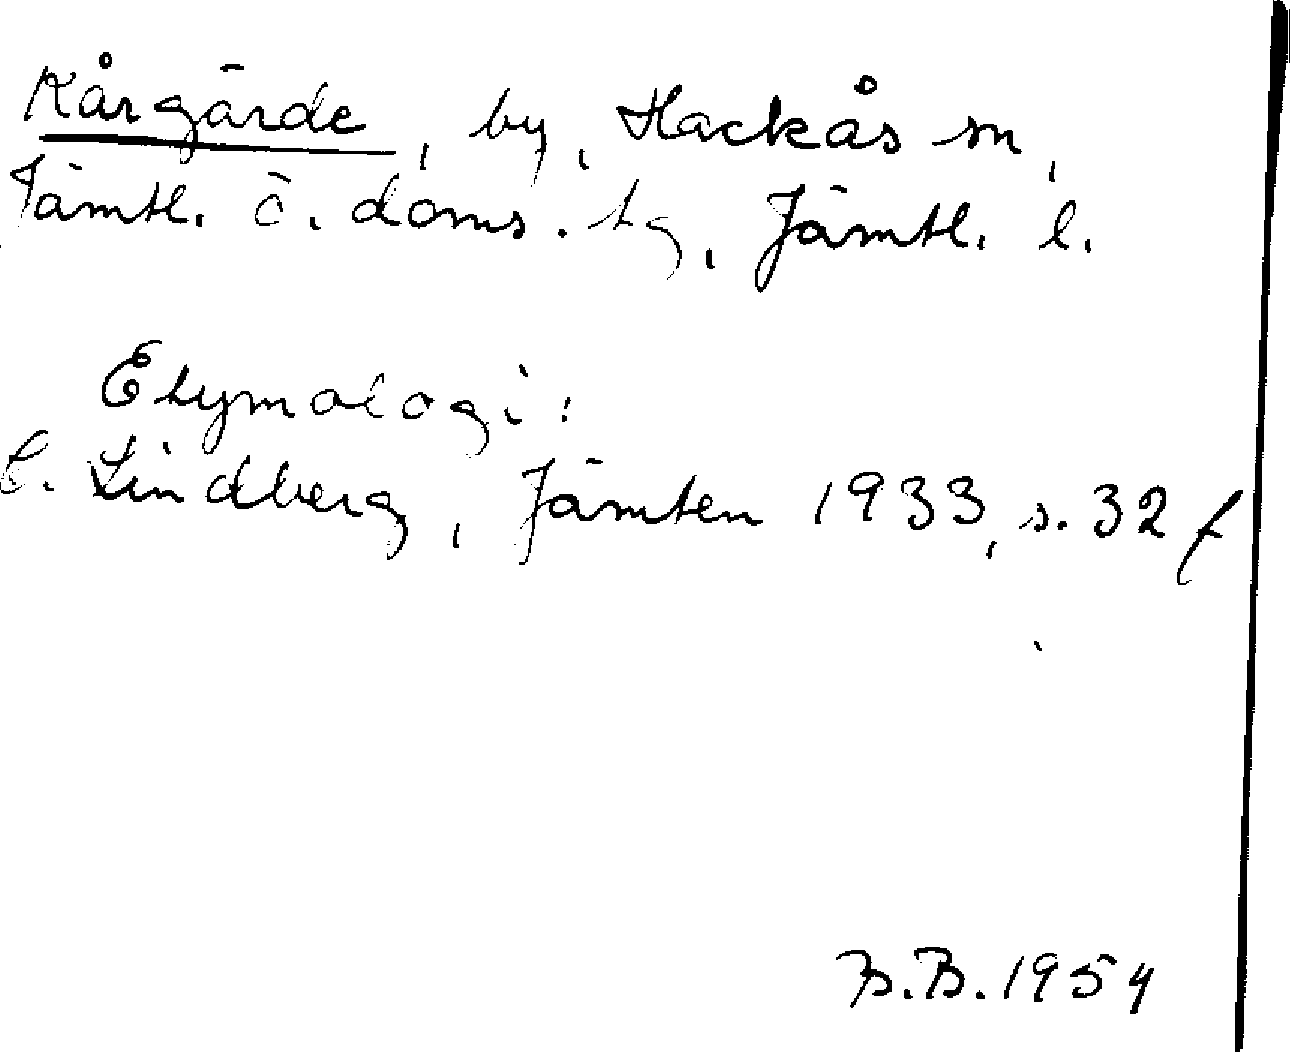 Kårgärde, by, Hackås sn,
Jämtl. ö. doms. tg, Jämtl. l.
Etymologi:
C. Lindberg, Jämten 1933, s. 32 f
B.B. 1954